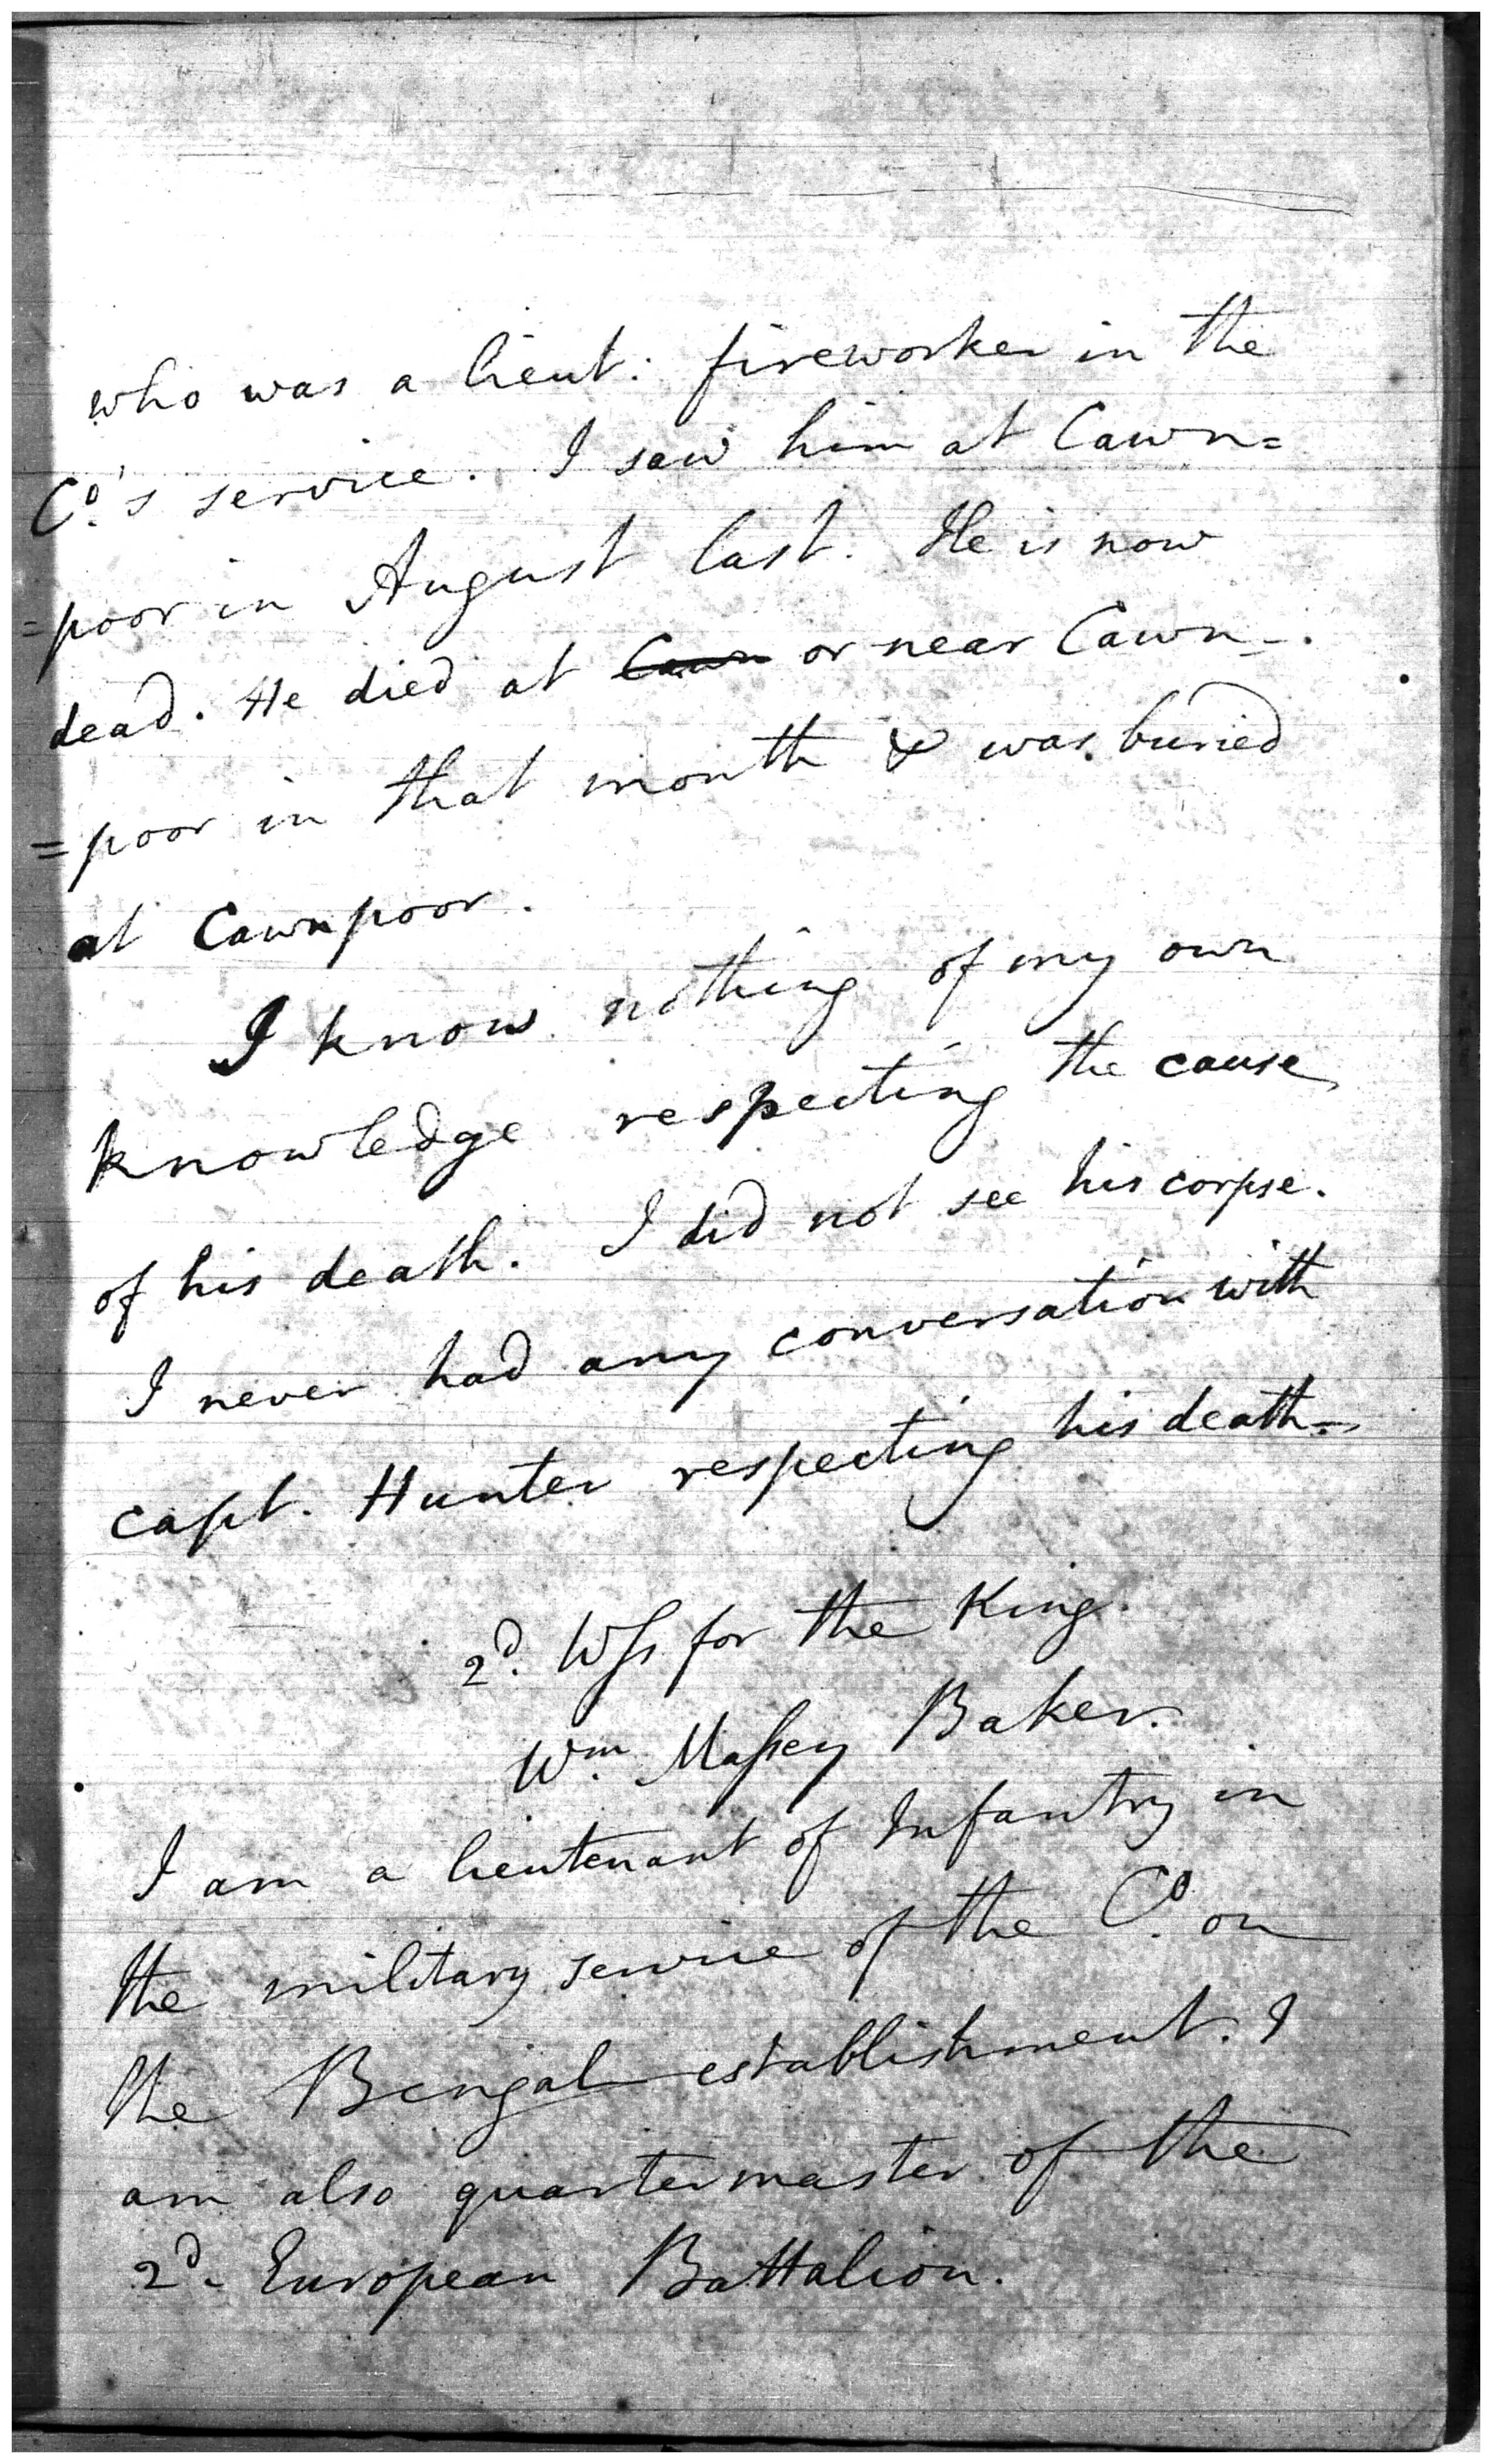 who was a lieut: fireworker in the
Co.'s service. I saw him at Cawn=
=poor in August last. He is now
dead. He died at Cawn or near Cawn-
=poor in that month & was buried
at Cawnpoor.
I know nothing of my own
knowledge respecting the cause
of his death. I did not see his corpse.
I never had any conversation with
capt. Hunter respecting his death=
2d. Wſs for the King.
Wm. Maſsey Baker.
I am a lieutenant of Infantry in
the military service of the Co. on
the Bengal establishment. I
am also quartermaster of the
2d. European Battalion.